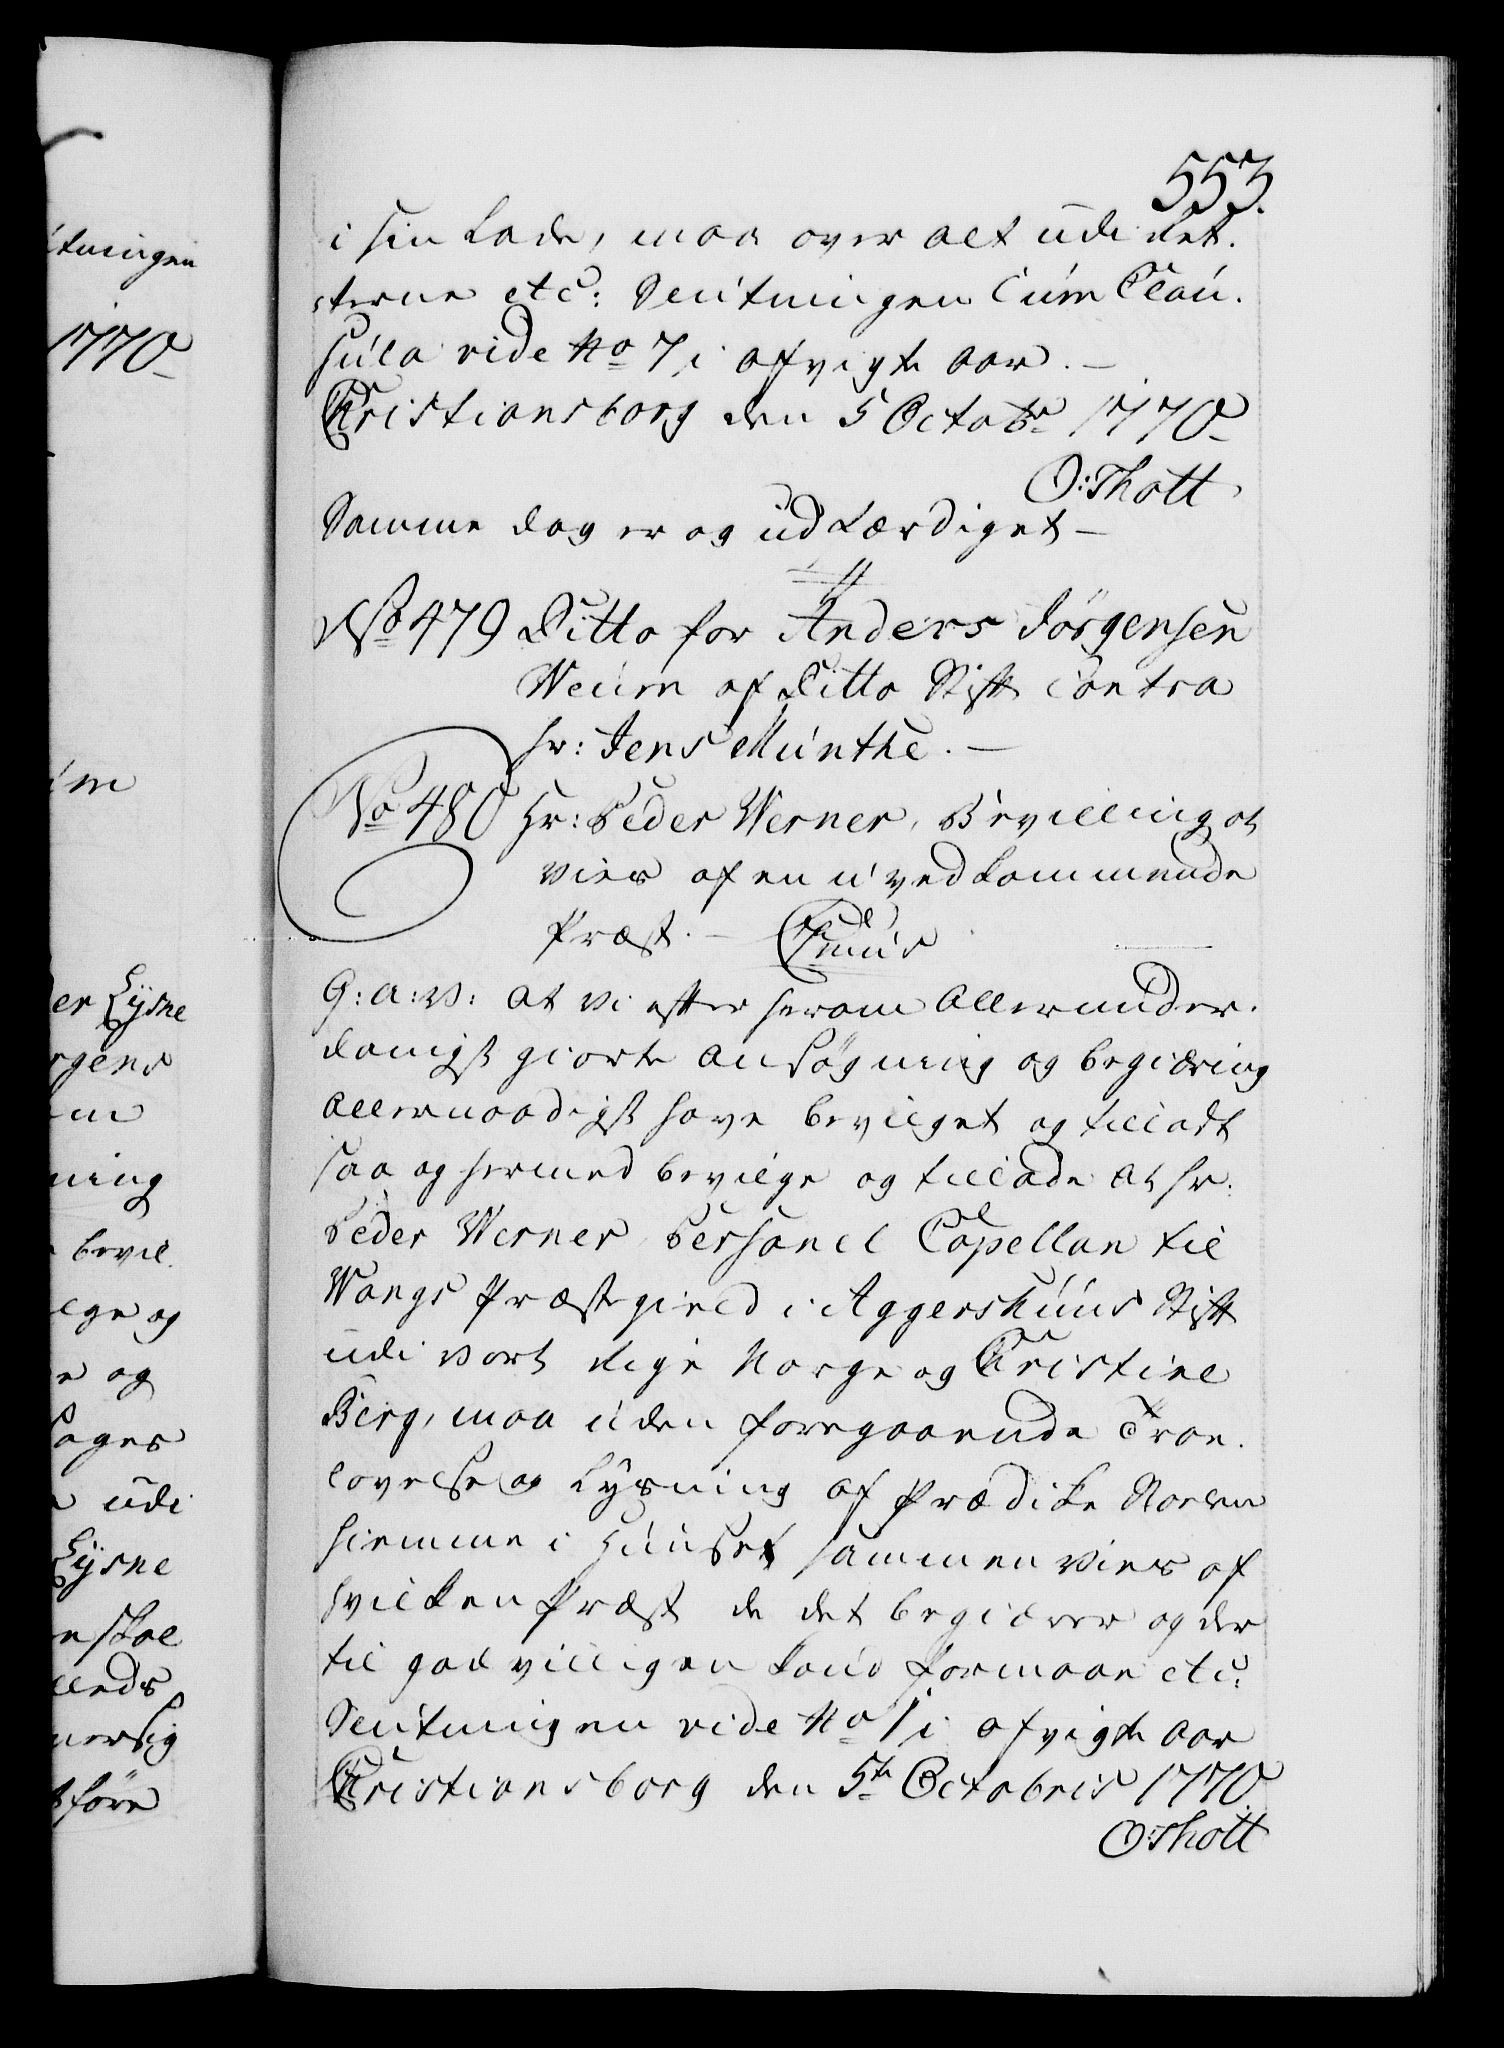 553.
i sin Kade, maa over alt udi Ret-
terne etc: Slutningen Cum Clau-
sula vide No 7, i afvigte Aar. —
Christiansborg den 5 Octobr 1770
O: Thott
Samme Dag er og udfærdiget —
No 479 Ditto for Anders Jörgensen
Weum af Ditto Stift contra
Hr: Jens Munthe. —
No 480 Hr: Peder Werner, Bevilling at
vies af en uvedkommende
Præst. — C7mus
G: a: V: at Vi efter herom Allerunder-
danigst giorte Ansögning og begiæring
Allernaadigst have bevilget og tilladt
saa og hermed bevilge og tillade at Hr:
Peder Werner Personel Capellan til
Wangs Præstegield i Aggershuus Stift
udi vort Rige Norge og Christine
Berg, maa uden foregaaende Troe-
lovelse og Lysning af Prædike Stoelen
hiemme i Huuset sammen vies af
hvilken Præst de det begiærer og der
til godvilligen kand formaae etc:
Slutningen vide No 1 i afvigte Aar
Christiansborg den 5te Octobris 1770
O: Thott
tningen
1770
um
er Lysne
rgens
ning
bevil-
lge og
e og
udi
Lysne
skal